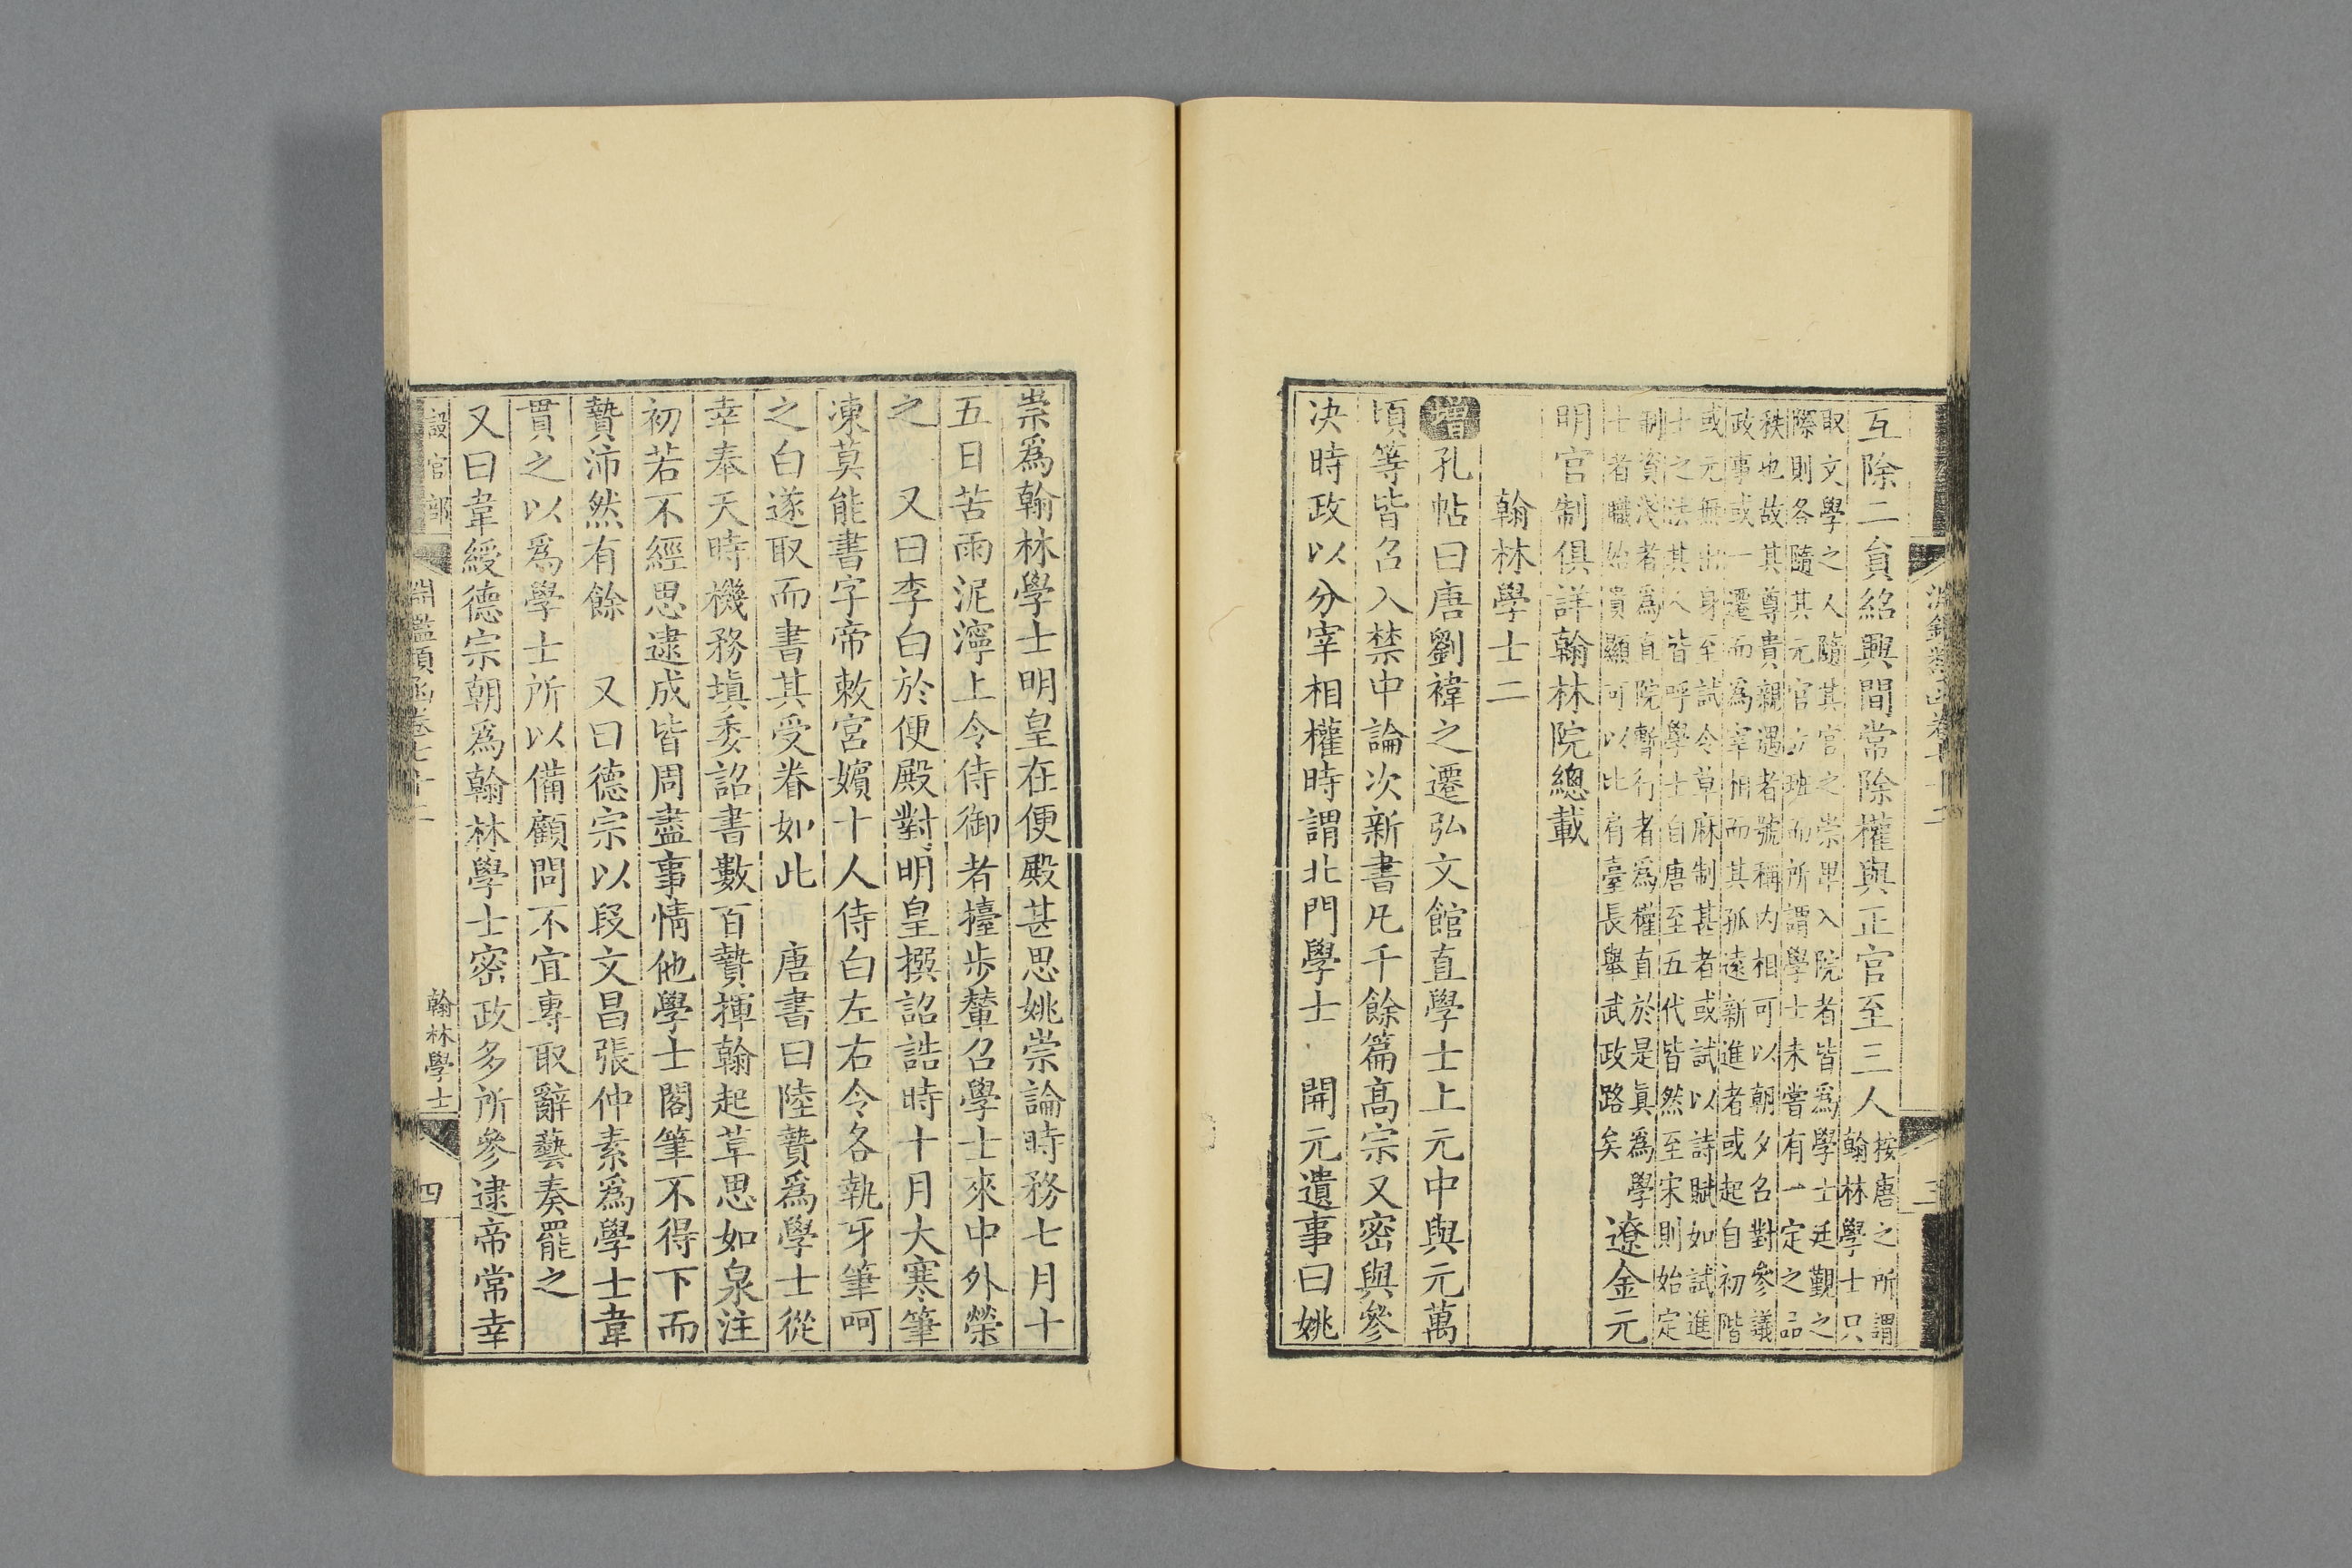 互除二貟紹興間常除權與正官至三人按唐之所謂
翰林學士只
取文學之人隨其官之崇卑入院者皆爲學士廷覲之
際則各隨其元官立班而所謂學士未嘗有一定之品
秩也故其尊貴親遇者號稱内相可以朝夕召對參議
政事或一遷而爲宰相而其孤遠新進者或起自初階
或元無出身至試令草麻制甚者或試以詩賦如試進
士之法其人皆呼學士自唐至五代皆然至宋則始定
制資淺者爲直院暫行者爲權直於是眞爲學
士者職始貴顯可以比肩臺長舉武政路矣
遼金元
明官制俱詳翰林院總載
翰林學士二
增孔帖曰唐劉褘之遷弘文館直學士上元中與元萬
頃等皆召入禁中論次新書凡千餘篇高宗又密與參
决時政以分宰相權時謂北門學士 開元遺事曰姚
崇爲翰林學士明皇在便殿甚思姚崇論時務七月十
五日苦雨泥濘上令侍御者擡步輦召學士來中外榮
之 又曰李白於便殿對明皇撰詔誥時十月大寒筆
凍莫能書字帝敕宮嬪十人侍白左右令各執牙筆呵
之白遂取而書其受眷如此 唐書曰陸贄爲學士從
幸奉天時機務塡委詔書數百贄揮翰起草思如泉注
初若不經思逮成皆周盡事情他學士閣筆不得下而
贄沛然有餘 又曰德宗以段文昌張仲素爲學士韋
貫之以爲學士所以備顧問不宜專取辭藝奏罷之
又曰韋綬德宗朝爲翰林學士密政多所參逮帝常幸
設官部
淵鑑類函卷七十二
翰林學士
四